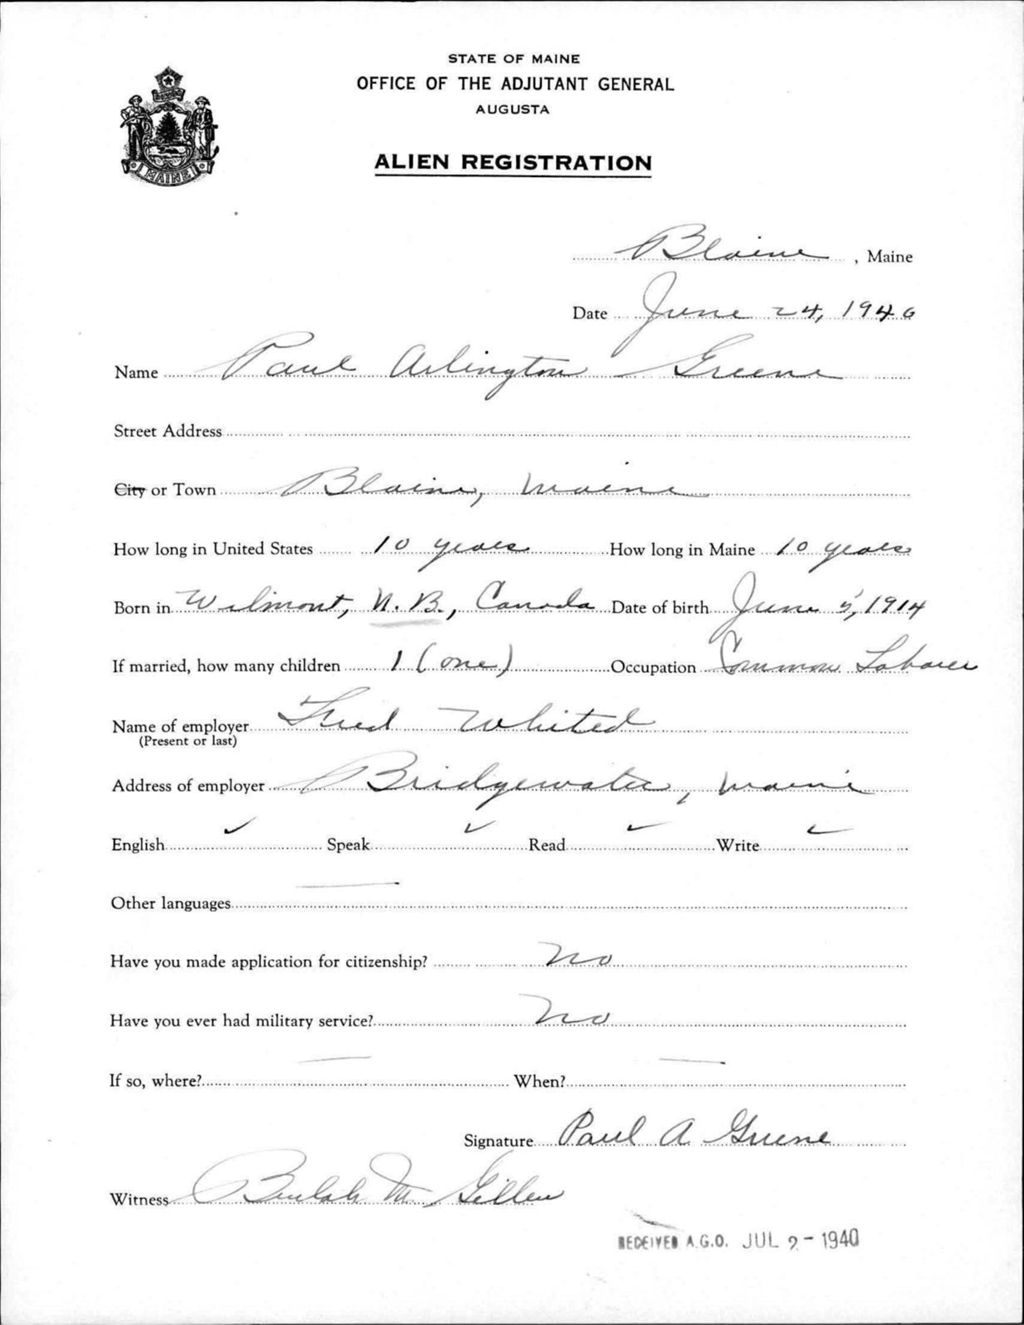 STATE OF MAINE
OFFICE OF THE ADJUTANT GENERAL
AUGUSTA
ALIEN REGISTRATION
MAINE
Blaine, Maine
Date June 24, 1940
Name Paul Arlington Greene
Street Address
City or Town Blaine, Maine
How long in United States 10 years How long in Maine 10 years
Born in Wilmont, N.B., Canada Date of birth June 5, 1914
If married, how many children 1 (one) Occupation Common Laborer
Name of employer Fred Whited
(Present or last)
Address of employer Bridgewater, Maine
English ✓ Speak ✓ Read ✓ Write ✓
Other languages —
Have you made application for citizenship? No
Have you ever had military service? No
If so, where? — When? —
Signature Paul A Greene
Witness Beulah M. Gillen
RECEIVED A.G.O. JUL 2 - 1940